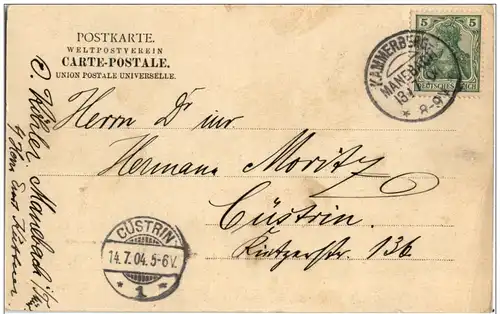 POSTKARTE.
WELTPOSTVEREIN
CARTE-POSTALE.
UNION POSTALE UNIVERSELLE.
5 5
DEUTSCHES REICH
KAMMERBERG
MANEBACH
13
* 8-9V.
Herrn Dr jur.
Hermann Moritz
Cüstrin
Kietzerstr. 136.
CÜSTRIN
14.7.04.5-6V.
* 1 *
O. Köhler Manebach i/Th